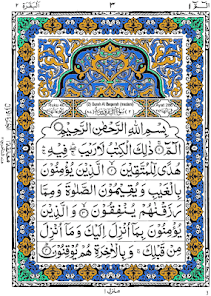 البقرة ٢
٣
الٓمّٓ ١
(2) Surah Al Baqarah (Madani)
بِسْمِ اللّٰهِ الرَّحْمٰنِ الرَّحِيْمِ
الٓمّٓ ۚ ذٰلِكَ الْكِتٰبُ لَا رَيْبَ ۛ فِيْهِ ۛ
هُدًى لِّلْمُتَّقِيْنَ ۙ الَّذِيْنَ يُؤْمِنُوْنَ
بِالْغَيْبِ وَيُقِيْمُوْنَ الصَّلٰوةَ وَمِمَّا
رَزَقْنٰهُمْ يُنْفِقُوْنَ ۙ وَالَّذِيْنَ
يُؤْمِنُوْنَ بِمَآ اُنْزِلَ اِلَيْكَ وَمَآ اُنْزِلَ
مِنْ قَبْلِكَ ۚ وَبِالْاٰخِرَةِ هُمْ يُوْقِنُوْنَ
منزل ١